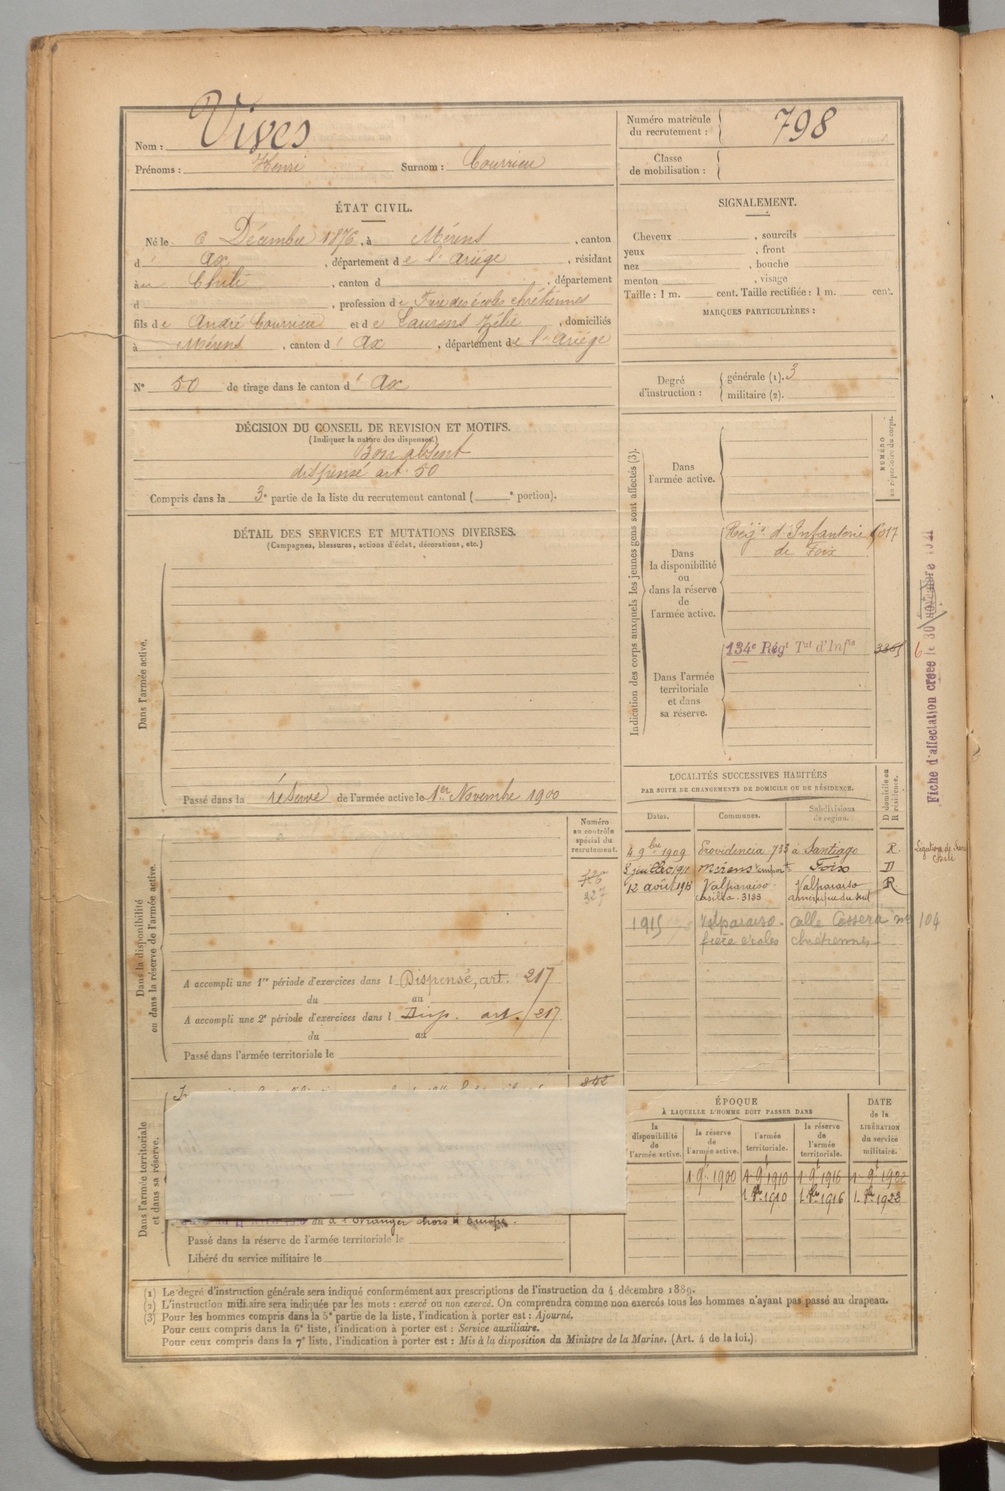 Nom : Vives
Prénoms : Henri Surnom : Courrieu
ÉTAT CIVIL.
Né le 6 Décembre 1876, à Mérens, canton
d' Ax, département de l'Ariége, résidant
au Chili, canton d , département
d , profession de Frère des écoles chrétiennes
fils de André Courrieu et de Laurens Zélie, domiciliés
à Mérens, canton d' Ax, département de l'Ariége
N° 50 de tirage dans le canton d' Ax
DÉCISION DU CONSEIL DE REVISION ET MOTIFS.
(Indiquer la nature des dispenses.)
Bon absent
dispensé art. 50
Compris dans la 3e partie de la liste du recrutement cantonal ( e portion).
DÉTAIL DES SERVICES ET MUTATIONS DIVERSES.
(Campagnes, blessures, actions d'éclat, décorations, etc.)
Dans l'armée active.
Passé dans la réserve de l'armée active le 1er Novembre 1900
Dans la disponibilité
ou dans la réserve de l'armée active.
Numéro
au contrôle
spécial du
recrutement.
327
A accompli une 1re période d'exercices dans l Dispensé, art. 217
du au
A accompli une 2e période d'exercices dans l Disp. art. 217.
du au
Passé dans l'armée territoriale le
Dans l'armée territoriale
et dans sa réserve.
à l'étranger hors d'Europe.
Passé dans la réserve de l'armée territoriale le
Libéré du service militaire le
Numéro matricule
du recrutement : 798
Classe
de mobilisation :
SIGNALEMENT.
Cheveux , sourcils
yeux , front
nez , bouche
menton , visage
Taille : 1 m. cent. Taille rectifiée : 1 m. cent.
MARQUES PARTICULIÈRES :
Degré
d'instruction :
générale (1). 3
militaire (2).
Indication des corps auxquels les jeunes gens sont affectés (3).
NUMÉRO
au répertoire du corps.
Dans
l'armée active.
Dans
la disponibilité
ou
dans la réserve
de
l'armée active.
Régt d'Infanterie
de Foix
134e Régt Tal d'Infie
Dans l'armée
territoriale
et dans
sa réserve.
Fiche d'affectation créée le 30 novembre 1921
LOCALITÉS SUCCESSIVES HABITÉES
PAR SUITE DE CHANGEMENTS DE DOMICILE OU DE RÉSIDENCE.
D domicile ou
R résidence.
Dates. Communes. Subdivisions
de région.
4 9bre 1909 Providencia 733 à Santiago R. Légation de
Chili
Mérens Foix D
12 août 1913 Valparaiso Valparaiso R
casilla 3133 amérique du sud
1915 Valparaiso. Calle no 104
frère écoles chrétiennes
ÉPOQUE
À LAQUELLE L'HOMME DOIT PASSER DANS
DATE
de la
LIBÉRATION
du service
militaire.
la
disponibilité
de
l'armée active.
la réserve
de
l'armée active.
l'armée
territoriale.
la réserve
de
l'armée
territoriale.
1 9bre 1900 1 9bre 1910 1 9bre 1916 1 9bre 1922
1. 1910 1. 1916 1. 1923
(1) Le degré d'instruction générale sera indiqué conformément aux prescriptions de l'instruction du 4 décembre 1889.
(2) L'instruction militaire sera indiquée par les mots : exercé ou non exercé. On comprendra comme non exercés tous les hommes n'ayant pas passé au drapeau.
(3) Pour les hommes compris dans la 5e partie de la liste, l'indication à porter est : Ajourné.
Pour ceux compris dans la 6e liste, l'indication à porter est : Service auxiliaire.
Pour ceux compris dans la 7e liste, l'indication à porter est : Mis à la disposition du Ministre de la Marine. (Art. 4 de la loi.)